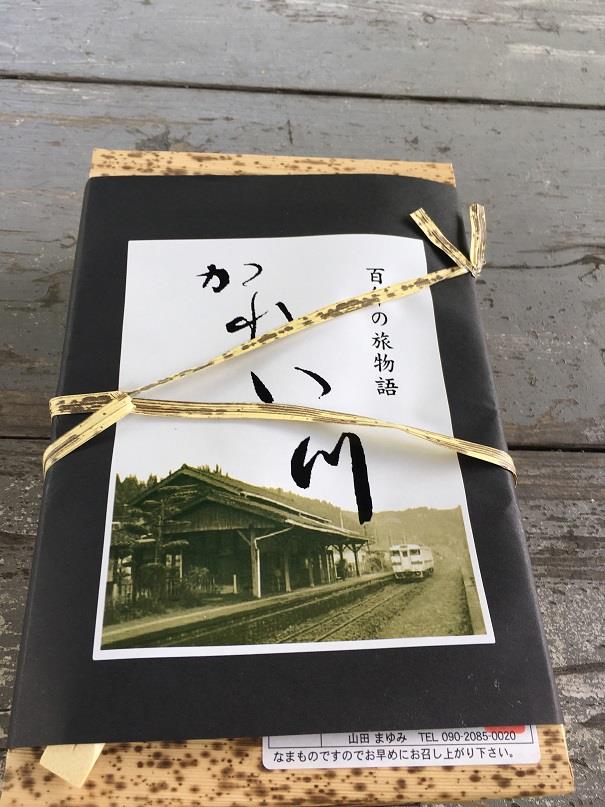 百年の旅物語
かれい川
山田 まゆみ TEL 090-2085-0020
なまものですのでお早めにお召し上がり下さい。